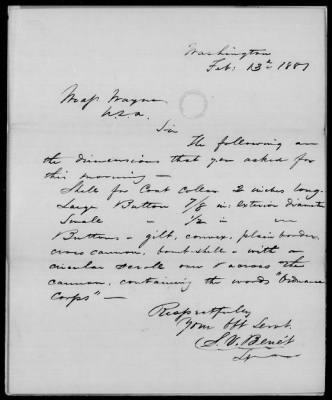 Washington
Feb: 13th 1887
Maj Wayne
U.S.A.
Sir
The following are
the dimensions that you asked for
this morning—
Shell for Coat Collar 2 inches long.
Large Button 7/8 in: exterior diameter
Small " 1/2 in "
Buttons - gilt, convex, plain border,
cross cannon, bomb-shell - with a
circular scroll over & across the
cannon, containing the words "Ordnance
Corps"—
Respectfully
Your Obt Servt.
S. V. Benét